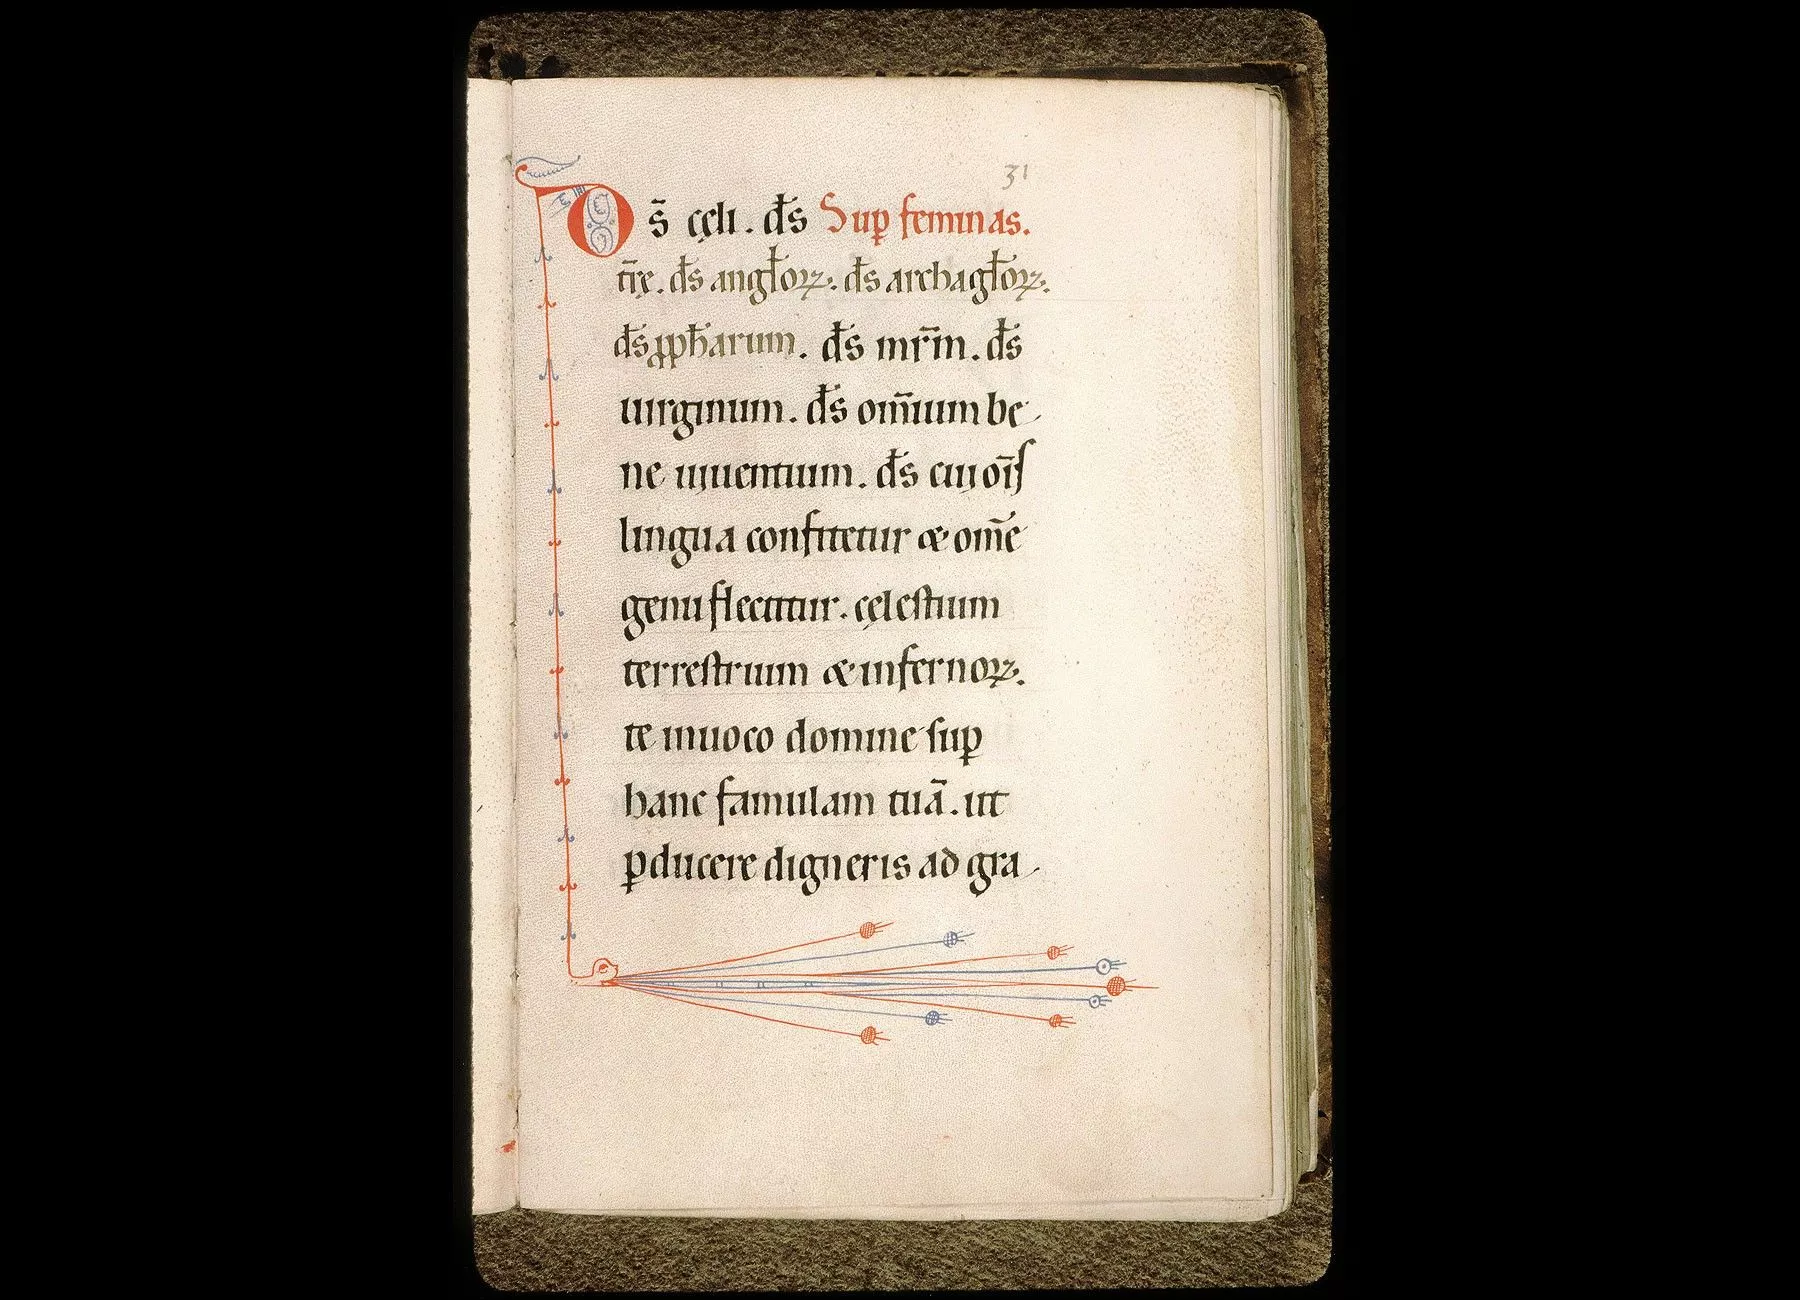 31
Ds̄ cęli. ds̄ Sup̲ feminas.
t̄rę. ds̄ angl̄oꝝ. ds̄ archagl̄oꝝ.
ds̄ ꝓph̄arum. ds̄ mr̄m. ds̄
uirginum. ds̄ om̄ium be-
ne uiuentium. ds̄ cui oīſ
lingua confitetur & om̄e
genu flectitur. cęleſtium
terreſtrium & infernoꝝ.
te inuoco domine ſuꝑ
hanc famulam tuā. ut
ꝑducere digneris ad gra-